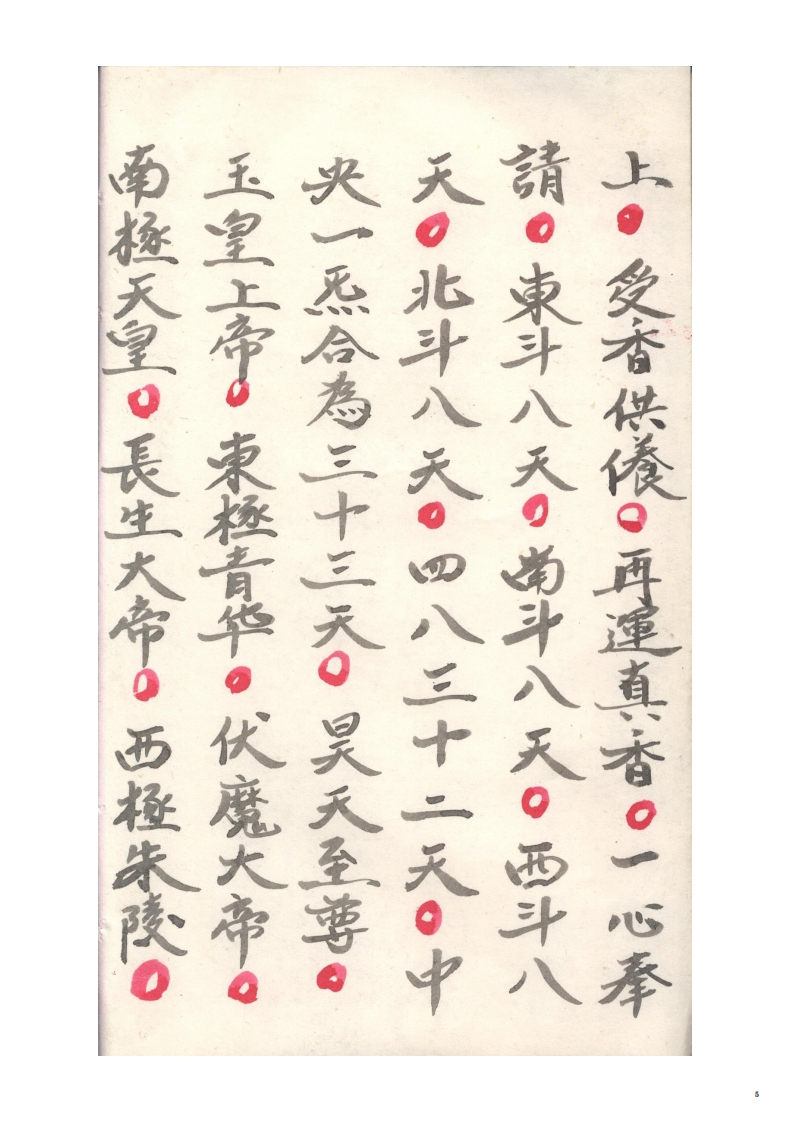 上○受香供養○再運真香○一心奉
請○東斗八天○南斗八天○西斗八
天○北斗八天○四八三十二天○中
央一炁合為三十三天○昊天至尊○
玉皇上帝○東極青华○伏魔大帝○
南極天皇○長生大帝○西極朱陵○
5